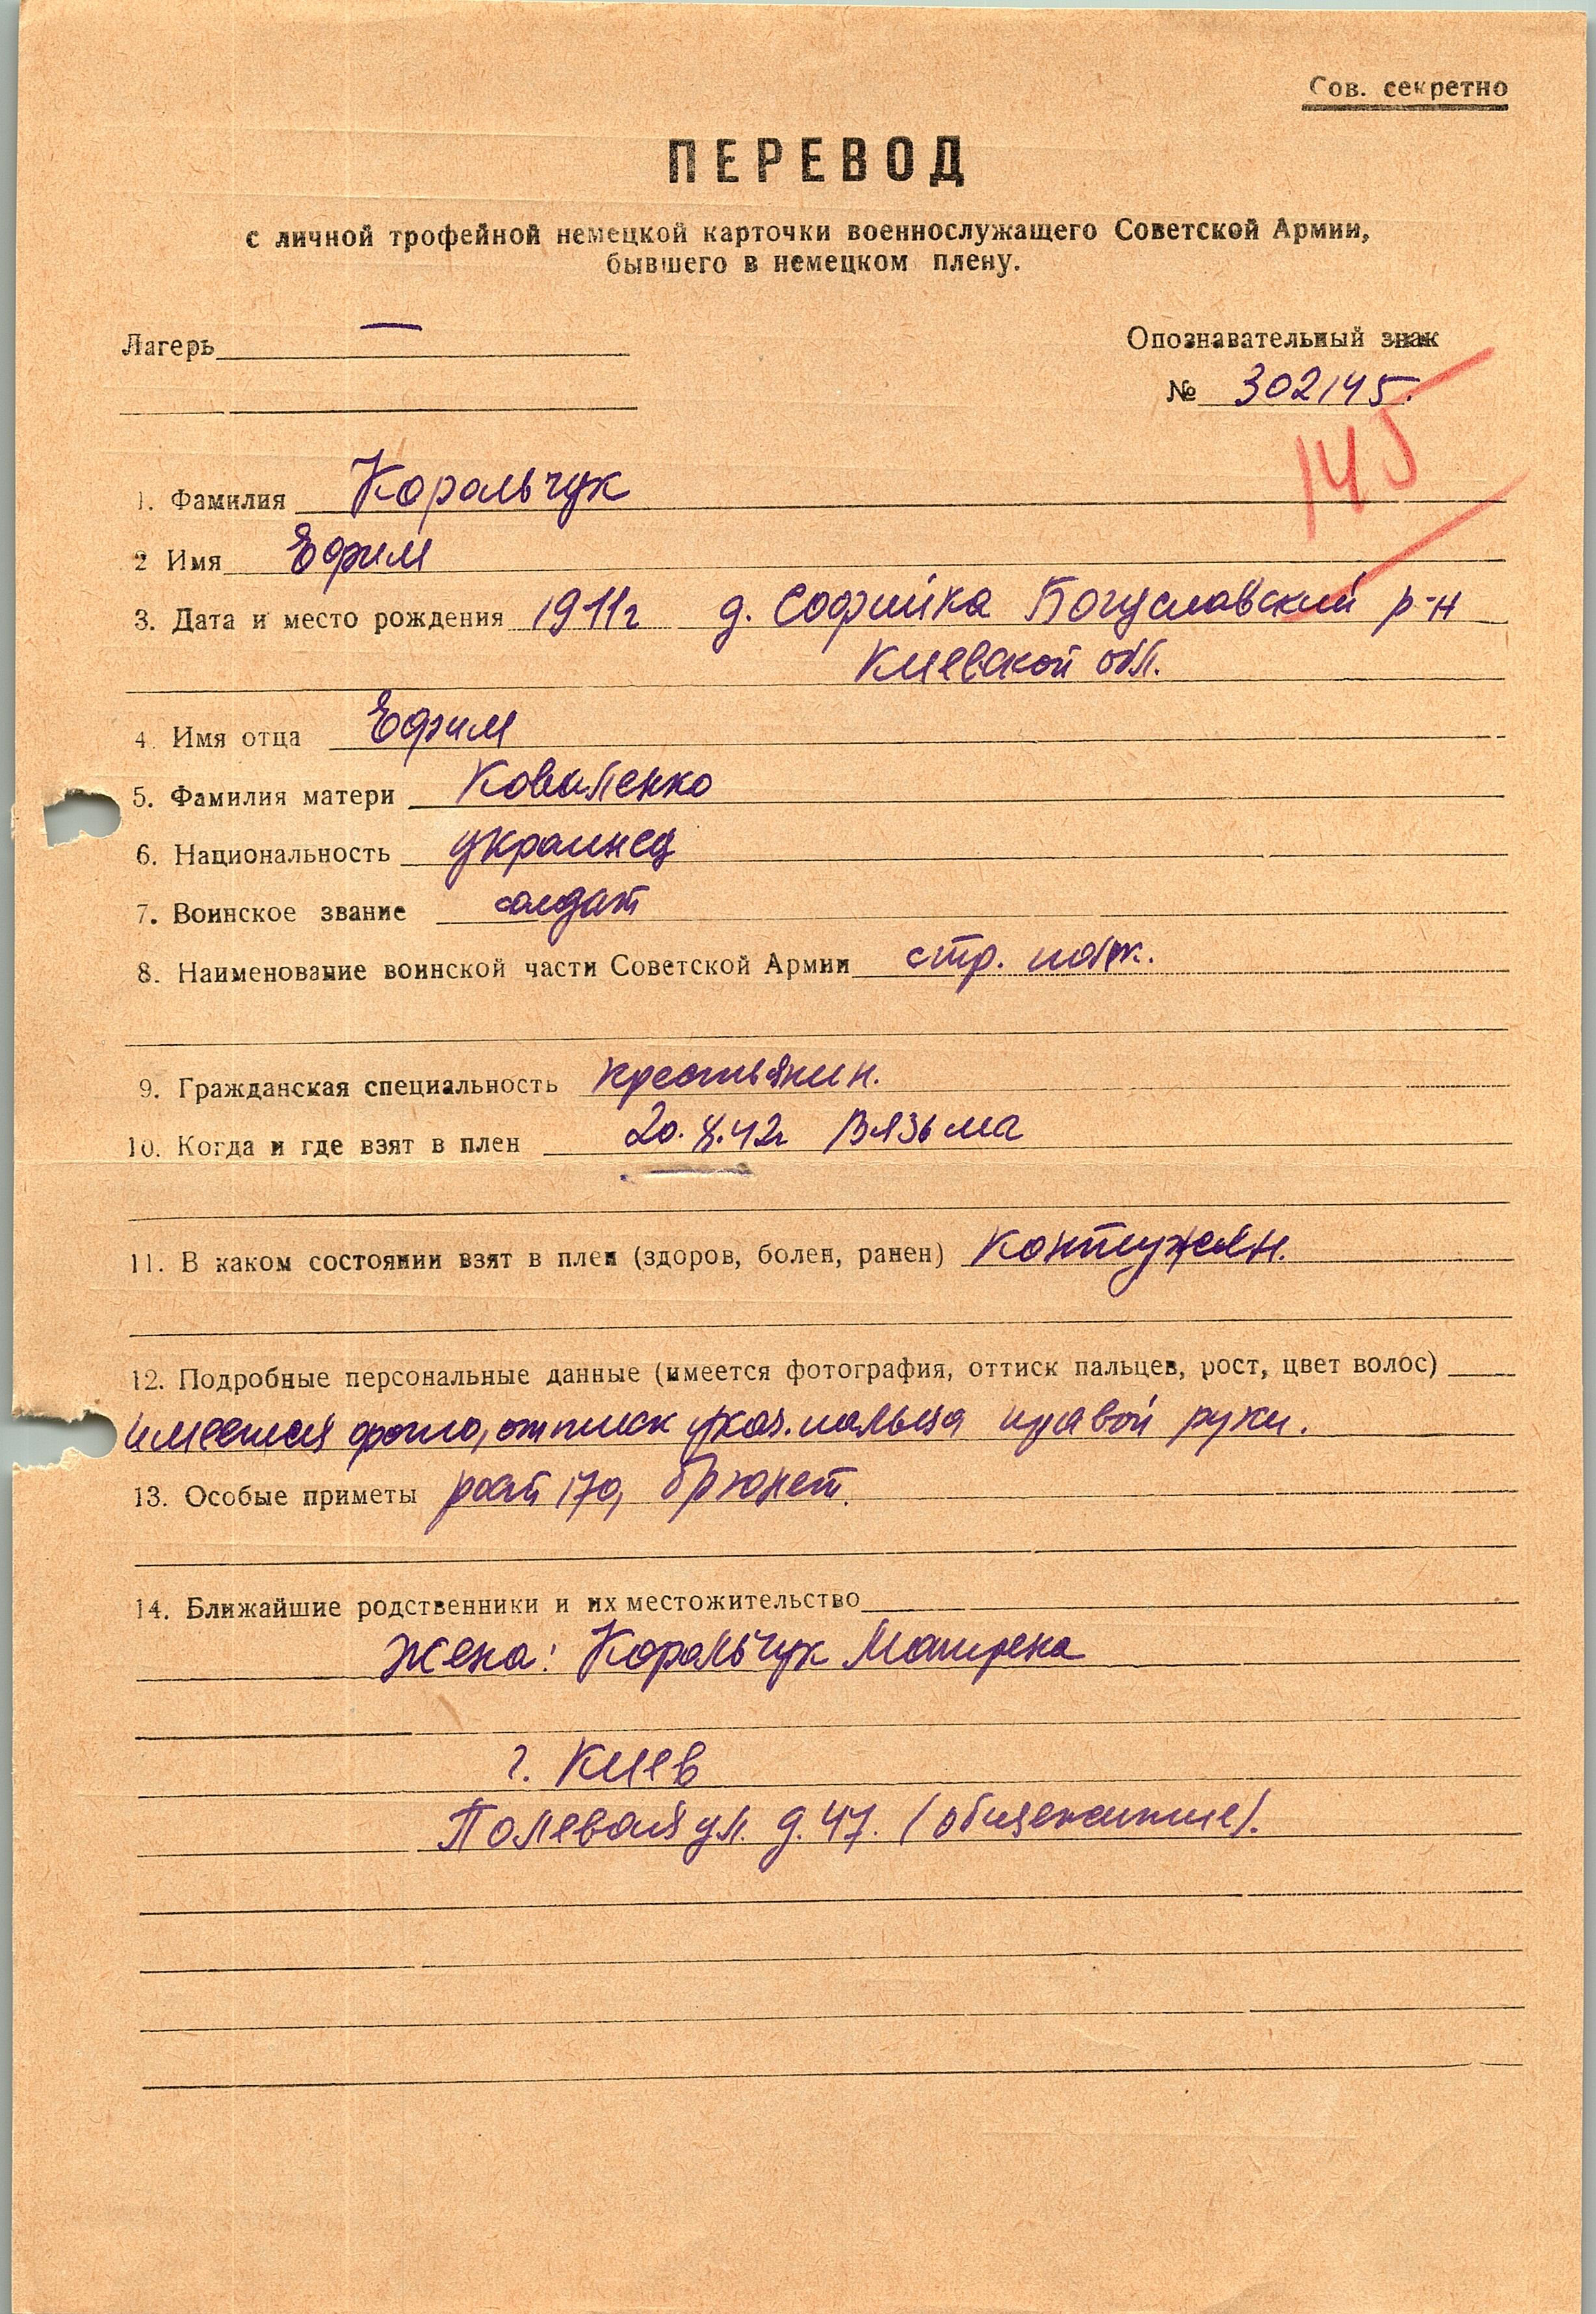 Сов. секретно
ПЕРЕВОД
с личной трофейной немецкой карточки военнослужащего Советской Армии,
бывшего в немецком плену.
Лагерь —
Опознавательный знак
№ 302145.
145
1. Фамилия Корольчук
2 Имя Ефим
3. Дата и место рождения 1911г д. Софийка Богуславский р-н
Киевской обл.
4. Имя отца Ефим
5. Фамилия матери Коваленко
6. Национальность украинец
7. Воинское звание солдат
8. Наименование воинской части Советской Армии стр. полк.
9. Гражданская специальность крестьянин.
10. Когда и где взят в плен 20. 8.42г Вязьма
11. В каком состоянии взят в плен (здоров, болен, ранен) контужен.
12. Подробные персональные данные (имеется фотография, оттиск пальцев, рост, цвет волос)
имеется фото, оттиск указ. пальца правой руки.
13. Особые приметы рост 170, брюнет.
14. Ближайшие родственники и их местожительство
Жена: Корольчук Мотрена
г. Киев
Полевая ул. д. 47. (общежитие).